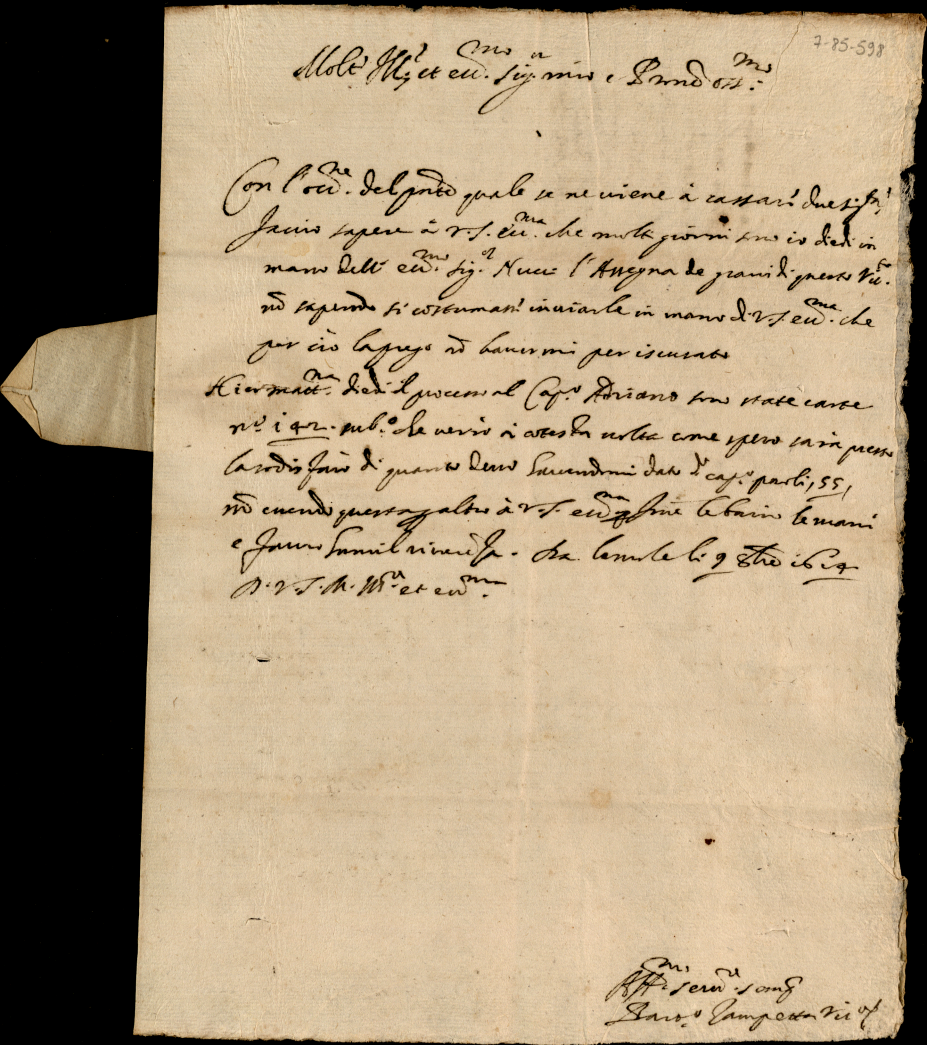 7-85-598
Molt' Ill.re et ecc.mo sig.r mio e Pron oss.mo
Con l'occ.ne del pnte quale se ne viene à cassar' due sig.tà
faccio sapere à V.S. ecc.ma che molti giorni sono io diedi in
mano dell' ecc.mo sig.r Nucci l'Assegna de grani di questo Vic.to
nō sapendo si costumass' inviarle in mano di V.S. ecc.ma che
per ciò la prego ad havermi per iscusato
Hier matt.na diedi il processo al Cap.o Adriano sono state carte
n.o 142. sub.o che verrò à cotesta volta come spero sarà presto
la sodisfarò di quanto devo havendomi dato d.o cap.o paoli, 55,
nō essendo questa p altro à V.S. ecc.ma le bacio le mani
e faccio humil riverenza. Da le li 9 8bre 1614
D. V. S. M. Ill.re et ecc.ma
Aff.mo serv.re
Vic.o